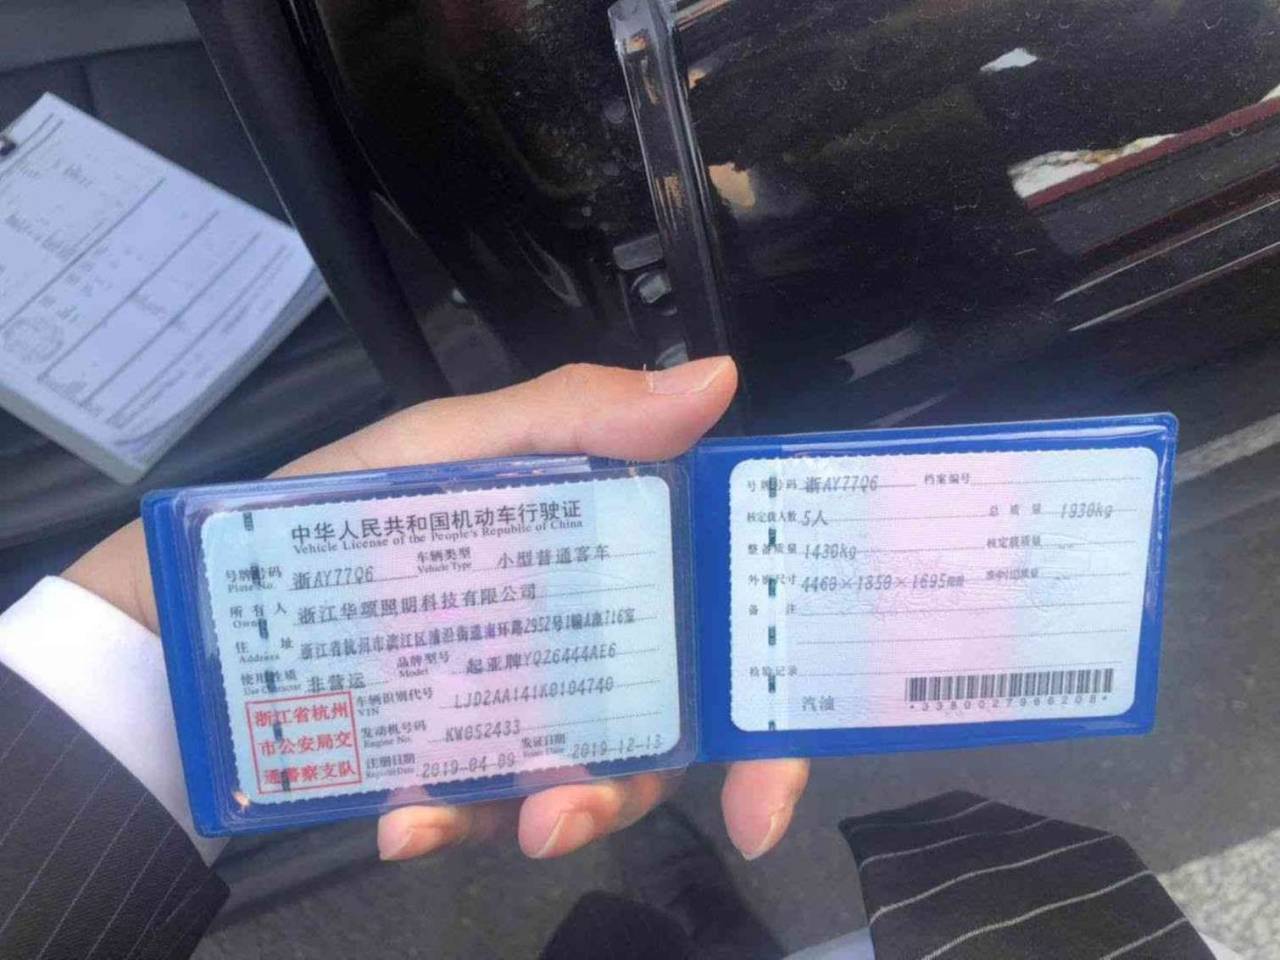 中华人民共和国机动车行驶证
Vehicle License of the People's Republic of China
号牌号码 浙AY77Q6 车辆类型 小型普通客车
Plate No. Vehicle Type
所有人 浙江华颂照明科技有限公司
Owner
住址 浙江省杭州市滨江区浦沿街道南环路2952号1幢A座716室
Address
使用性质 非营运 品牌型号 起亚牌YQZ6444AE6
Use Character Model
浙江省杭州
市公安局交
通警察支队
车辆识别代号 LJD2AA141K0104740
VIN
发动机号码 KW052433
Engine No.
注册日期 2019-04-09 发证日期 2019-12-13
Register Date Issue Date
号牌号码 浙AY77Q6 档案编号
核定载人数 5人 总质量 1930kg
整备质量 1430kg 核定载质量
外廓尺寸 4460×1850×1695mm 准牵引总质量
备注
检验记录
汽油
*3380027966208*